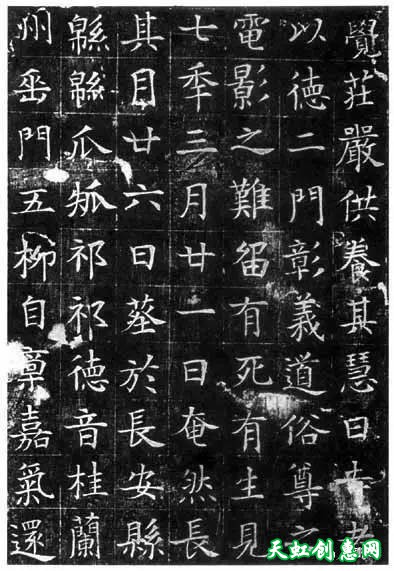 覺莊嚴供養其慧日
以徳二門彰義道俗尊之
電影之難留有死有生見
七秊三月廿一日奄然長
其月廿六日葬於長安縣
緜緜瓜瓞祁祁徳音桂蘭
州垂門五柳自章嘉氣還
天虹创惠网